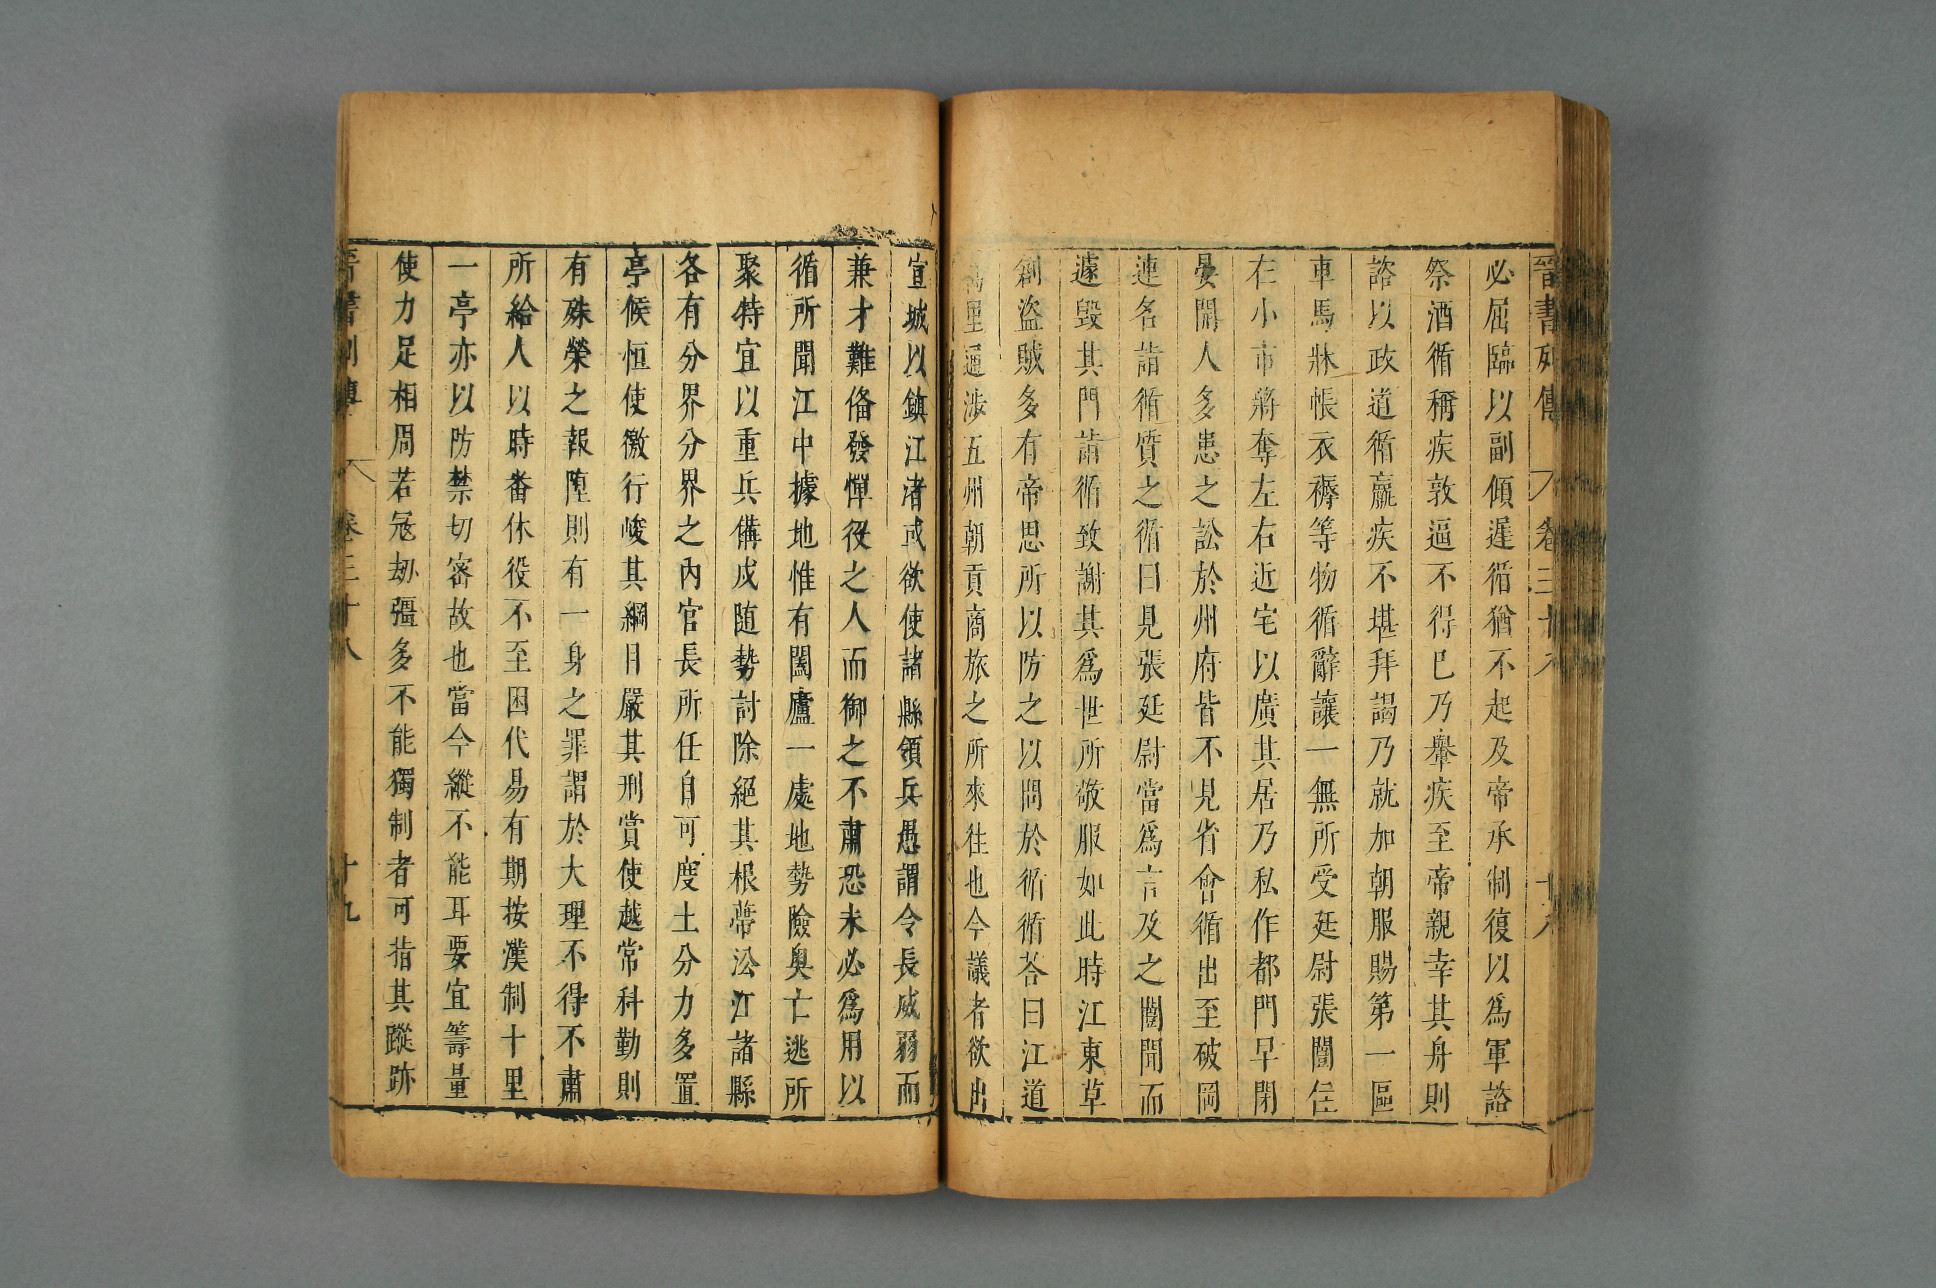 晉書列傳 卷三十八 十八
必屈臨以副傾遲循猶不起及帝承制復以爲軍諮
祭酒循稱疾敦逼不得已乃轝疾至帝親幸其舟則
諮以政道循羸疾不堪拜謁乃就加朝服賜第一區
車馬牀帳衣褥等物循辭讓一無所受廷尉張闓住
在小市將奪左右近宅以廣其居乃私作都門早閉
晏開人多患之訟於州府皆不見省會循出至破岡
連名詣循質之循曰見張廷尉當爲言及之闓聞而
遽毀其門詣循致謝其爲世所敬服如此時江東草
創盜賊多有帝思所以防之以問於循循荅曰江道
萬里通涉五州朝貢商旅之所來往也今議者欲出
宣城以鎮江渚或欲使諸縣領兵愚謂令長威弱而
兼才難俻發憚役之人而御之不肅恐未必爲用以
循所聞江中據地惟有闔廬一處地勢險奥亡逃所
聚特宜以重兵備戍随勢討除絕其根蔕㳂江諸縣
各有分界分界之内官長所任自可度土分力多置
亭候恒使徼行峻其綱目嚴其刑賞使越常科勤則
有殊榮之報墮則有一身之罪謂於大理不得不肅
所給人以時番休役不至困代易有期按漢制十里
一亭亦以防禁切密故也當今縱不能耳要宜籌量
使力足相周若冦劫彊多不能獨制者可指其蹤跡
晉書列傳 卷三十八 十九